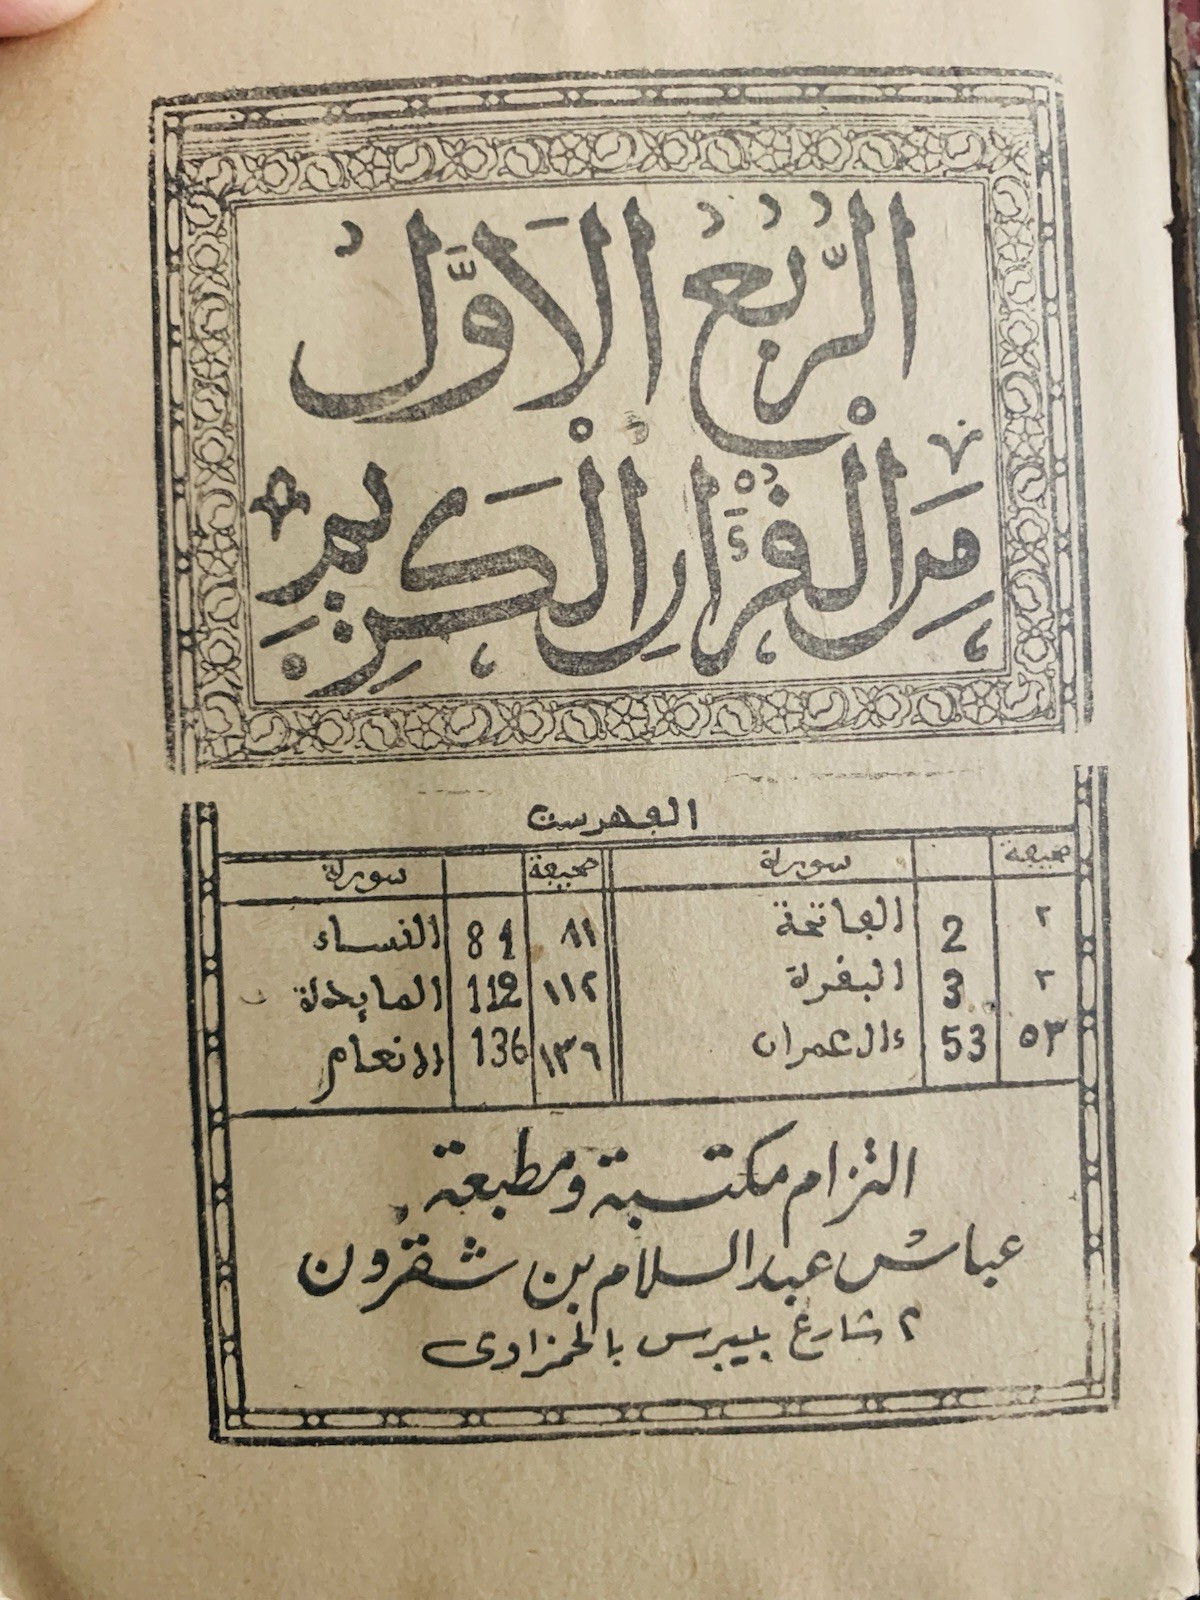 الرُّبُعُ الاَوَّلُ
مِنَ الْقُرْءَانِ الْكَرِيمِ
الفهرست
صحيفة سورة صحيفة سورة
٢ 2 الفاتحة ٨١ 81 النساء
٣ 3 البقرة ١١٢ 112 المايدة
٥٣ 53 ءال عمران ١٣٦ 136 الانعام
التزام مكتبة ومطبعة
عباس عبد السلام بن شقرون
٢ شارع بيبرس بالحمزاوى